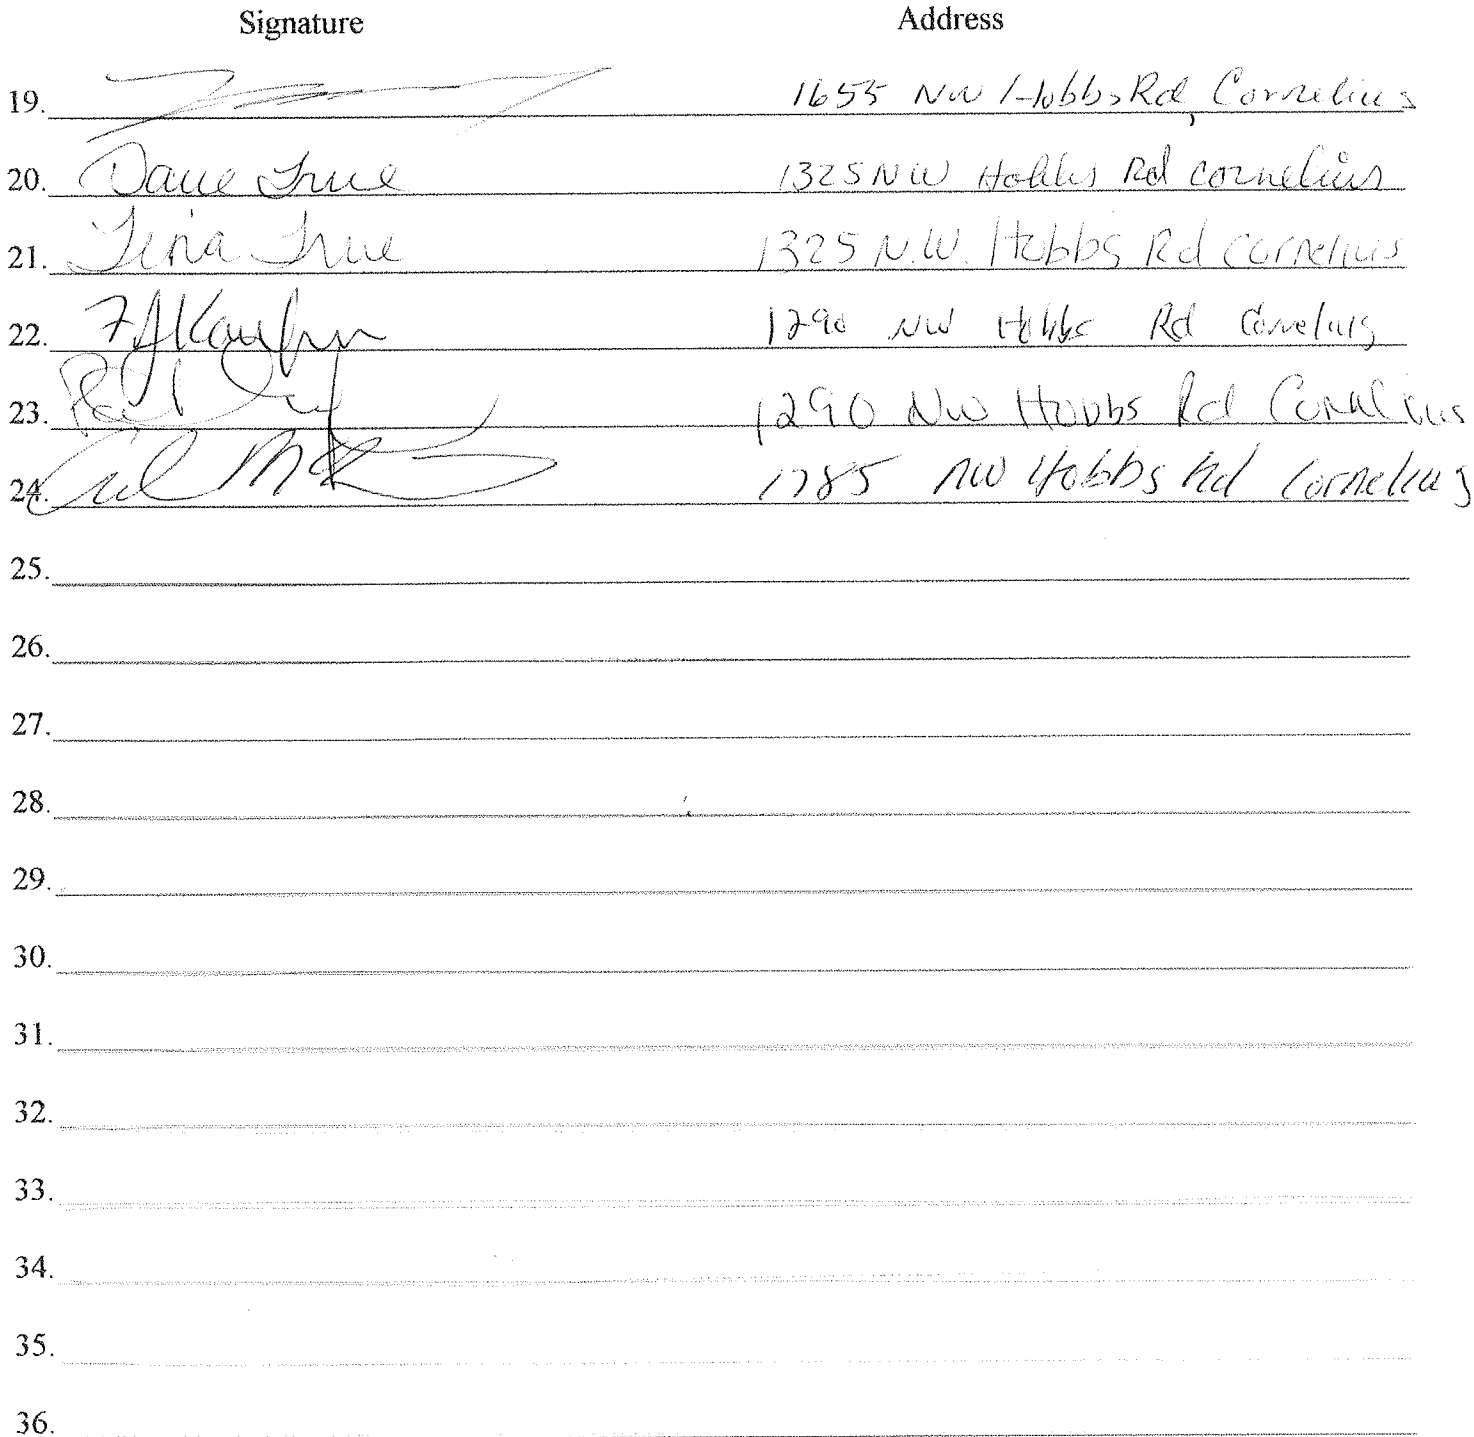 Signature Address
19. 1655 NW Hobbs Rd, Cornelius
20. Dave True 1325 NW Hobbs Rd cornelius
21. Tina True 1325 N.W. Hobbs Rd Cornelius
22. 1290 NW Hobbs Rd Cornelius
23. 1290 NW Hobbs Rd Cornelius
24. 1785 NW Hobbs Rd Cornelius
25.
26.
27.
28.
29.
30.
31.
32.
33.
34.
35.
36.